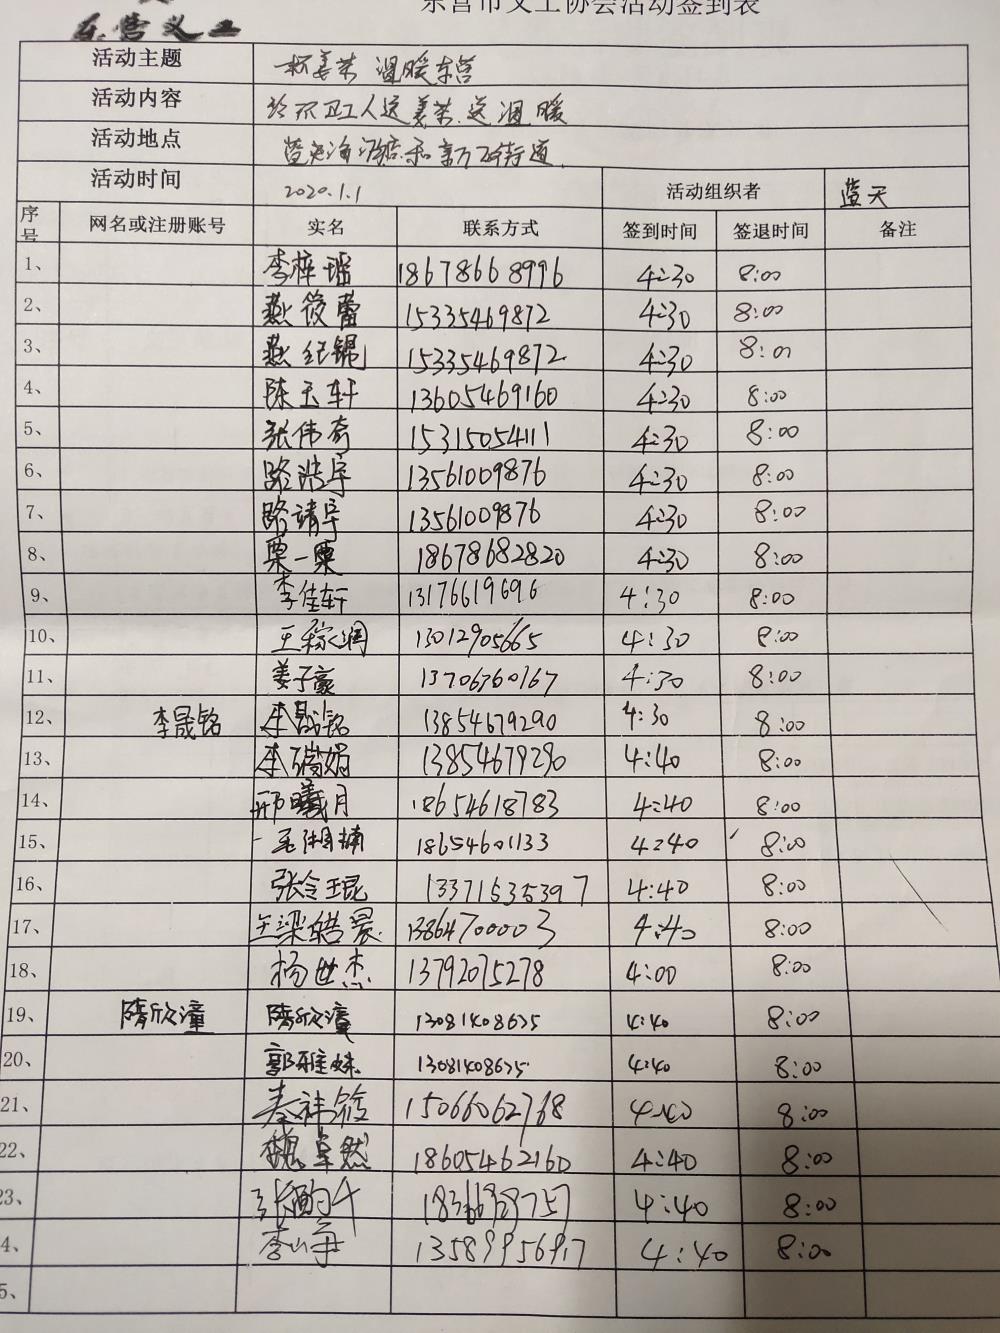 东营市义工协会活动签到表
东营义工
活动主题 一杯姜茶 温暖东营
活动内容 给环卫工人送姜茶.送温暖
活动地点
活动时间 2020.1.1 活动组织者 蓝天
序号 网名或注册账号 实名 联系方式 签到时间 签退时间 备注
1、 李梓瑶 18678668996 4:30 8:00
2、 燕筱蕾 15335469872 4:30 8:00
3、 燕纪锟 15335469872 4:30 8:00
4、 陈玉轩 13605469160 4:30 8:00
5、 张伟奇 15315054111 4:30 8:00
6、 路浩宇 13561009876 4:30 8:00
7、 路靖宇 13561009876 4:30 8:00
8、 栗一粟 18678682820 4:30 8:00
9、 李佳轩 13176619696 4:30 8:00
10、 13012905665 4:30 8:00
11、 姜子豪 13706360167 4:30 8:00
12、 李晟铭 李晟铭 13854679290 4:30 8:00
13、 李瑞娟 13854679290 4:40 8:00
14、 邢曦月 18654618783 4:40 8:00
15、 18654601133 4:40 8:00
16、 张令琨 13371535397 4:40 8:00
17、 王梁皓晨 13864700003 4:40 8:00
18、 杨世杰 13792075278 4:00 8:00
19、 隋欣潼 隋欣潼 13081408635 4:40 8:00
20、 郭雅妹 13081408635 4:40 8:00
21、 15066062768 4:40 8:00
22、 魏卓然 18605462160 4:40 8:00
23、 4:40 8:00
4、 13589956917 4:40 8:00
5、